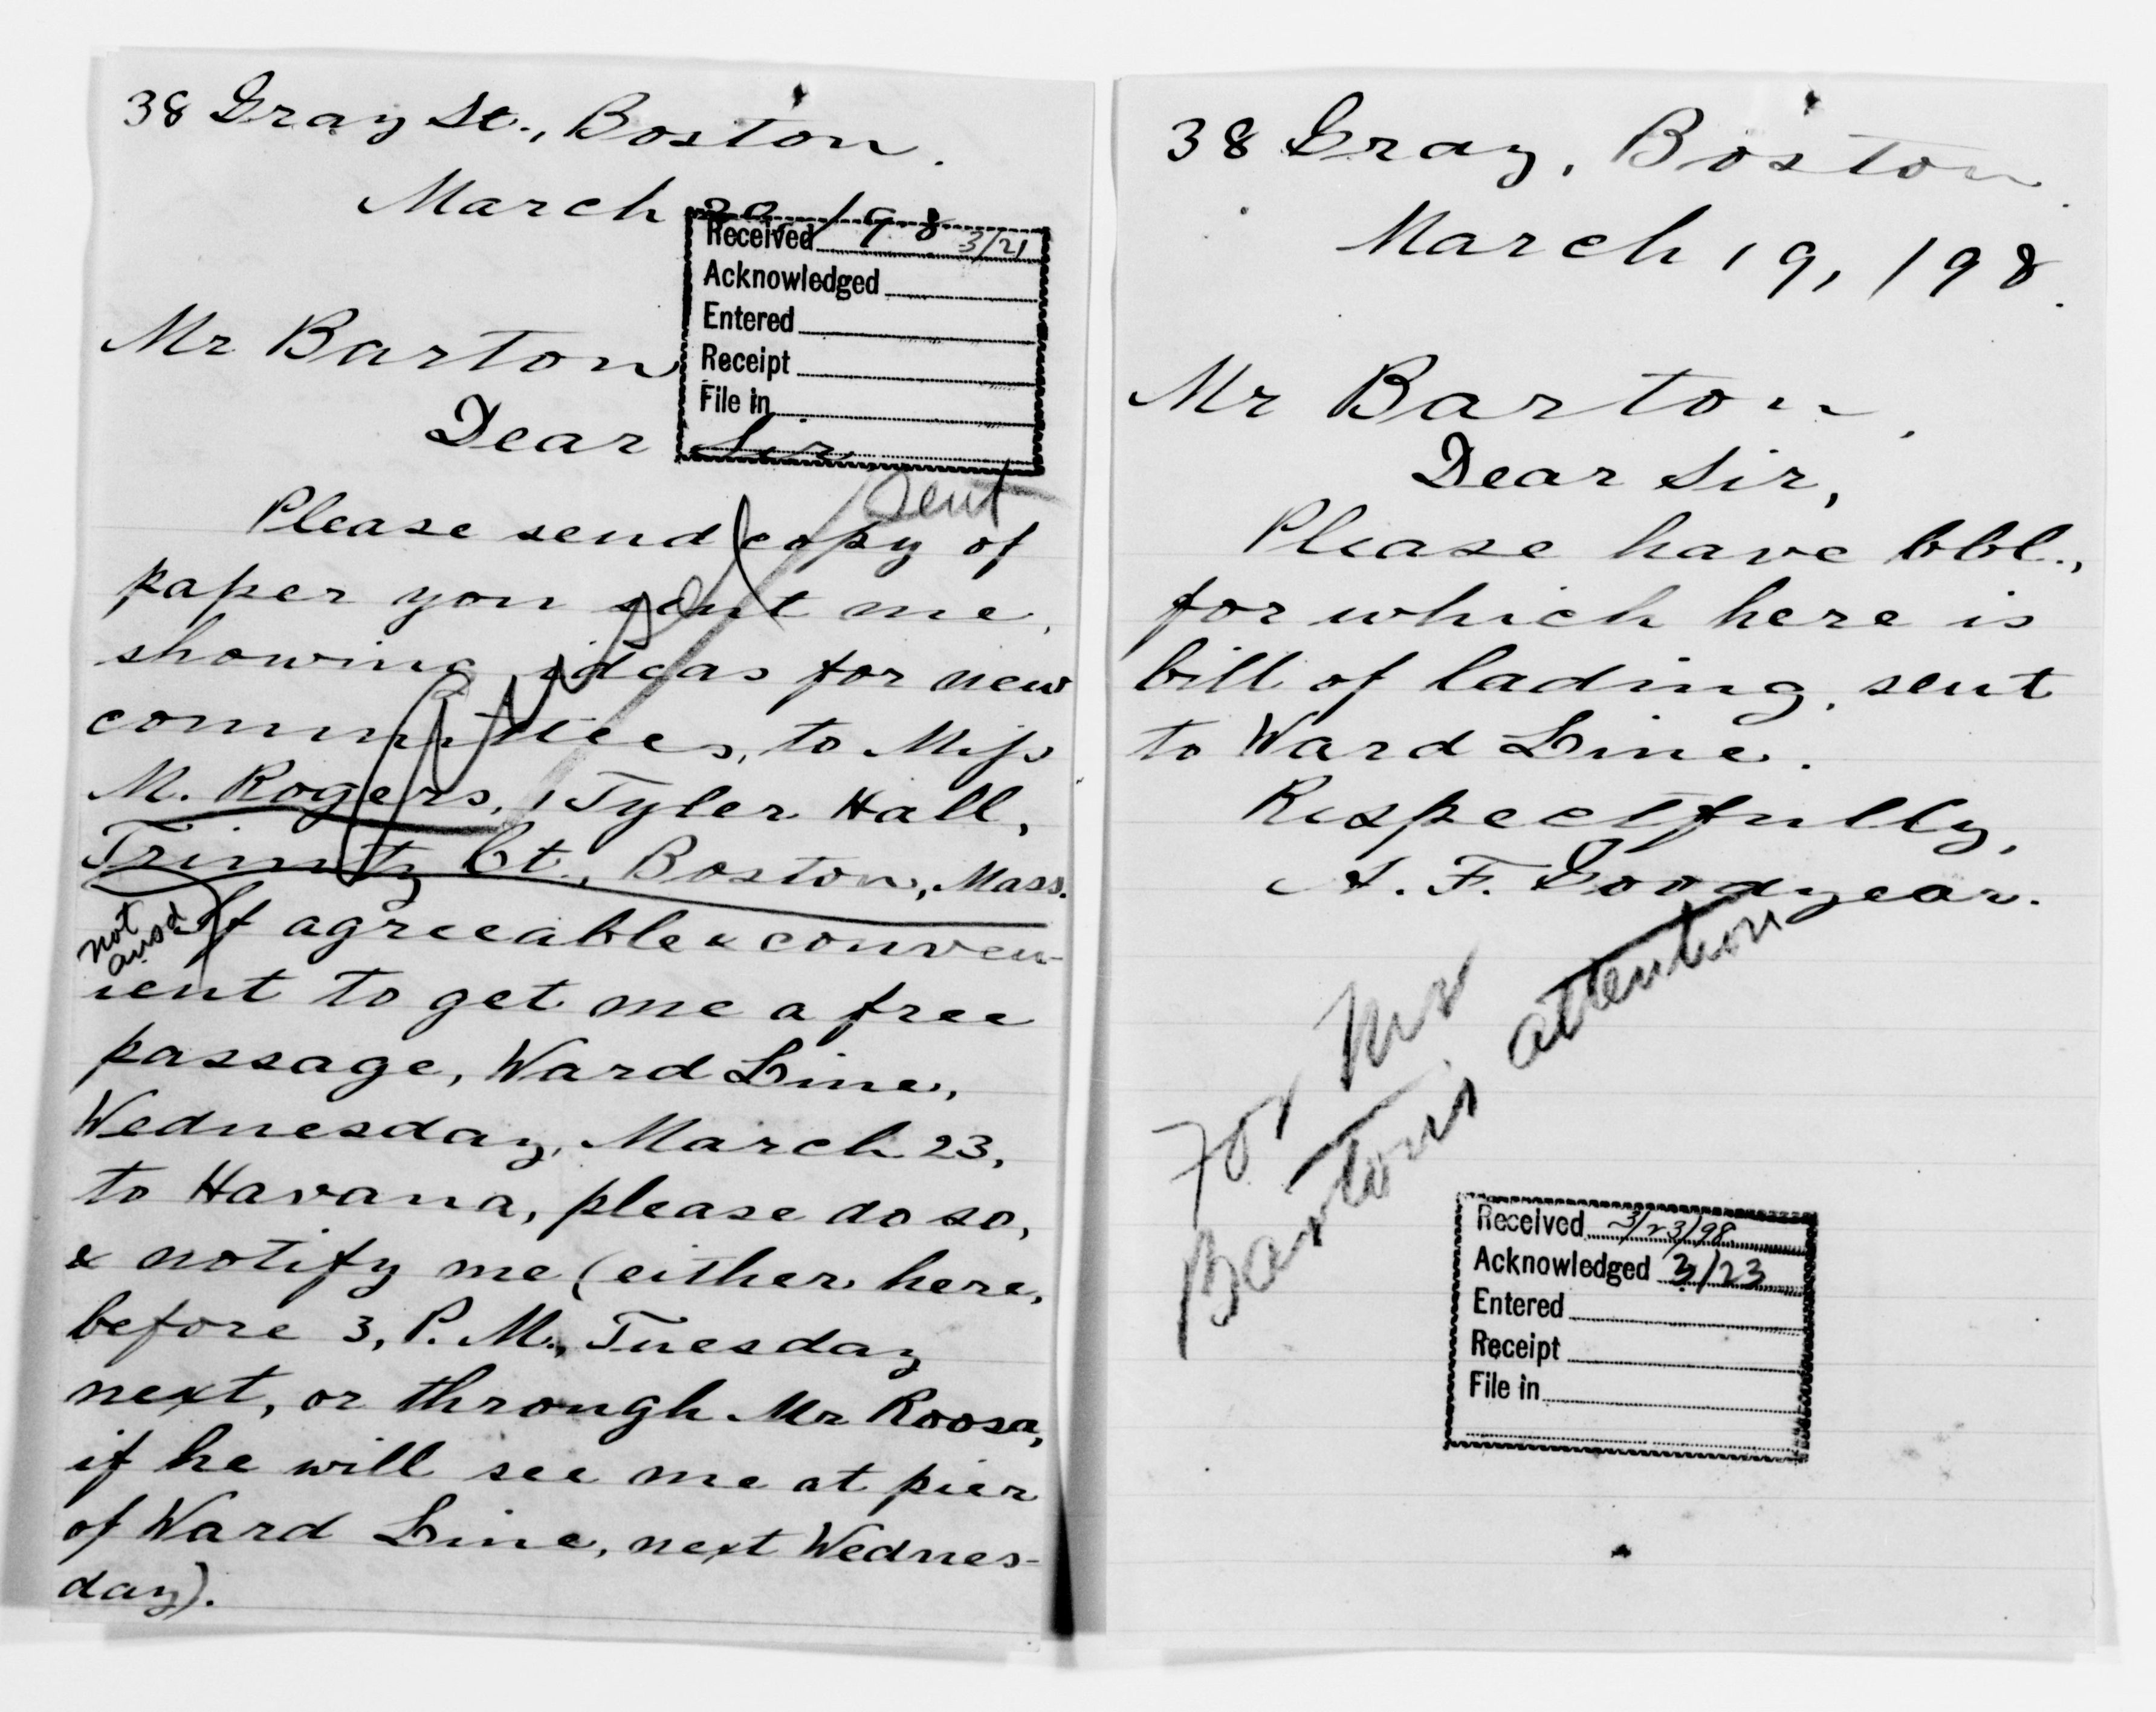 38 Gray St., Boston.
March 20, /98
Received 3/21
Acknowledged
Entered
Receipt
File in
Mr Barton
Dear Sir
sent
Please send copy of
paper you sent me,
showing ideas for new
committees, to Miss
M. Rogers, 1 Tyler Hall,
Trinity Ct., Boston, Mass.
not
ansd
If agreeable & conven-
ient to get me a free
passage, Ward Line,
Wednesday, March 23,
to Havana, please do so,
& notify me (either here,
before 3, P. M., Tuesday
next, or through Mr Roosa,
if he will see me at pier
of Ward Line, next Wednes-
day).
38 Gray, Boston
March 19, /98.
Mr Barton,
Dear Sir,
Please have bbl.,
for which here is
bill of lading, sent
to Ward Line.
Respectfully,
A. F. Goodyear.
For Mr
Bartons attention
Received 3/23/98
Acknowledged 3/23
Entered
Receipt
File in